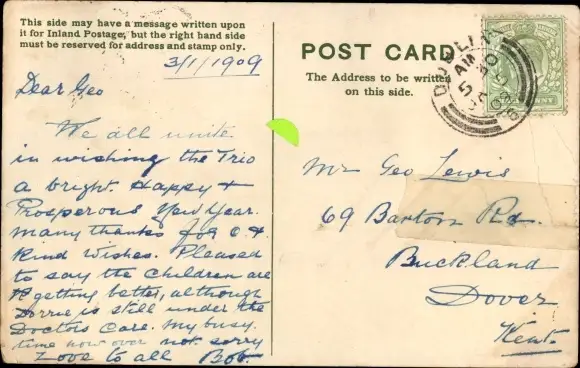 This side may have a message written upon
it for Inland Postage, but the right hand side
must be reserved for address and stamp only.
3/1/1909
Dear Geo
We all unite
in wishing the Trio
a bright. Happy &
Prosperous New Year.
Many thanks for C &
Kind Wishes. Pleased
to say the Children are
getting better, although
Dorrie is still under the
Doctors Care. My busy
time now over not sorry
Love to all Bob.
POST CARD
The Address to be written
on this side.
DUBLIN
Mr Geo Lewis
69 Barton Rd.
Buckland
Dover
Kent.